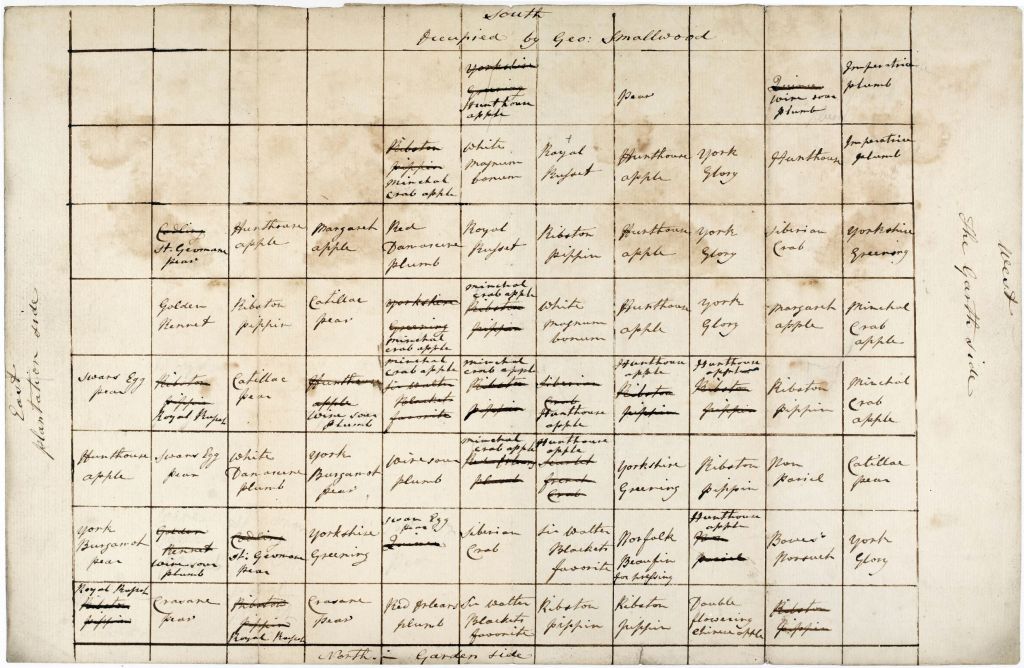 South
Occupied by Geo: Smallwood
Yorkshire
Greening
Hunthouse
apple
Pear
Quince
Wine sour
plumb
Imperatrice
plumb
Ribston
pippin
minchal
crab apple
White
magnum
bonum
Royal
Russet
Hunthouse
apple
York
Glory
Hunthouse
Imperatrice
plumb
Codling
St. Germane
pear
Hunthouse
apple
Margaret
apple
Red
Damascene
plumb
Royal
Russet
Ribston
pippin
Hunthouse
apple
York
Glory
Siberian
Crab
Yorkshire
Greening
Golden
Rennet
Ribston
pippin
Catillac
pear
Yorkshire
Greening
minchal
crab apple
minchal
crab apple
Ribston
pippin
White
magnum
bonum
Hunthouse
apple
York
Glory
Margaret
apple
Minchal
Crab
apple
Swans Egg
pear
Ribston
pippin
Royal Russet
Catillac
pear
Hunthouse
apple
Wine sour
plumb
minchal
crab apple
Sir Walter
Blackets
favorite
minchal
crab apple
Ribston
pippin
Siberian
Crab
Hunthouse
apple
Hunthouse
apple
Ribston
pippin
Hunthouse
apple
Ribston
pippin
Ribston
pippin
Minchal
Crab
apple
Hunthouse
apple
Swans Egg
pear
White
Damascene
plumb
York
Burgamot
pear
Wine sour
plumb
minchal
crab apple
Red Orleans
plumb
Hunthouse
apple
Scarlet
french
Crab
Yorkshire
Greening
Ribston
pippin
Non
pariel
Catillac
pear
York
Burgamot
pear
Golden
Rennet
Wine sour
plumb
Codling
St. Germane
pear
Yorkshire
Greening
Swan Egg
pear
Quince
Siberian
Crab
Sir Walter
Blackets
favorite
Norfolk
Beaufin
for pressing
Hunthouse
apple
Non
pariel
Bovers
Nonsuch
York
Glory
Royal Russet
Ribston
pippin
Crasane
pear
Ribston
pippin
Royal Russet
Crasane
pear
Red Orleans
plumb
Sir Walter
Blackets
favorite
Ribston
pippin
Ribston
pippin
Double
flowering
chinese apple
Ribston
pippin
North – Garden side
East
plantation side
West
The Garth side